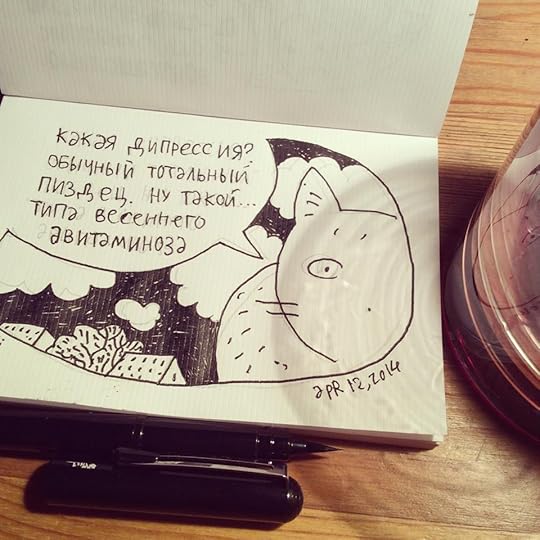 какая дипрессия?
обычный тотальный
пиздец. ну такой...
типа весеннего
авитаминоза
apr 12, 2014